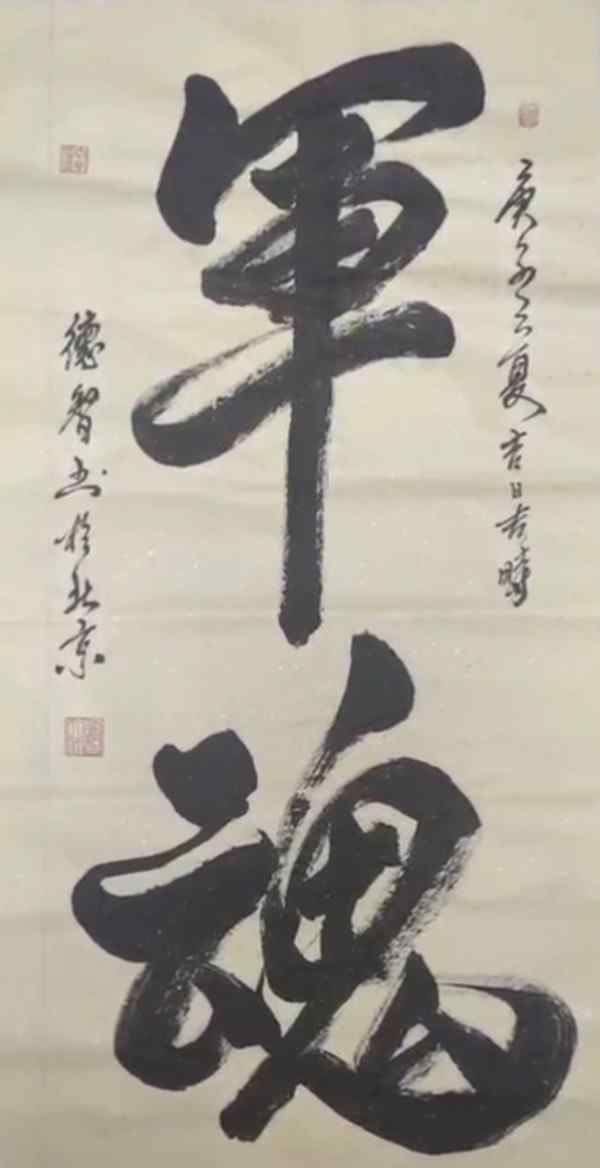 庚子之夏吉日吉時
軍魂
德智书於北京